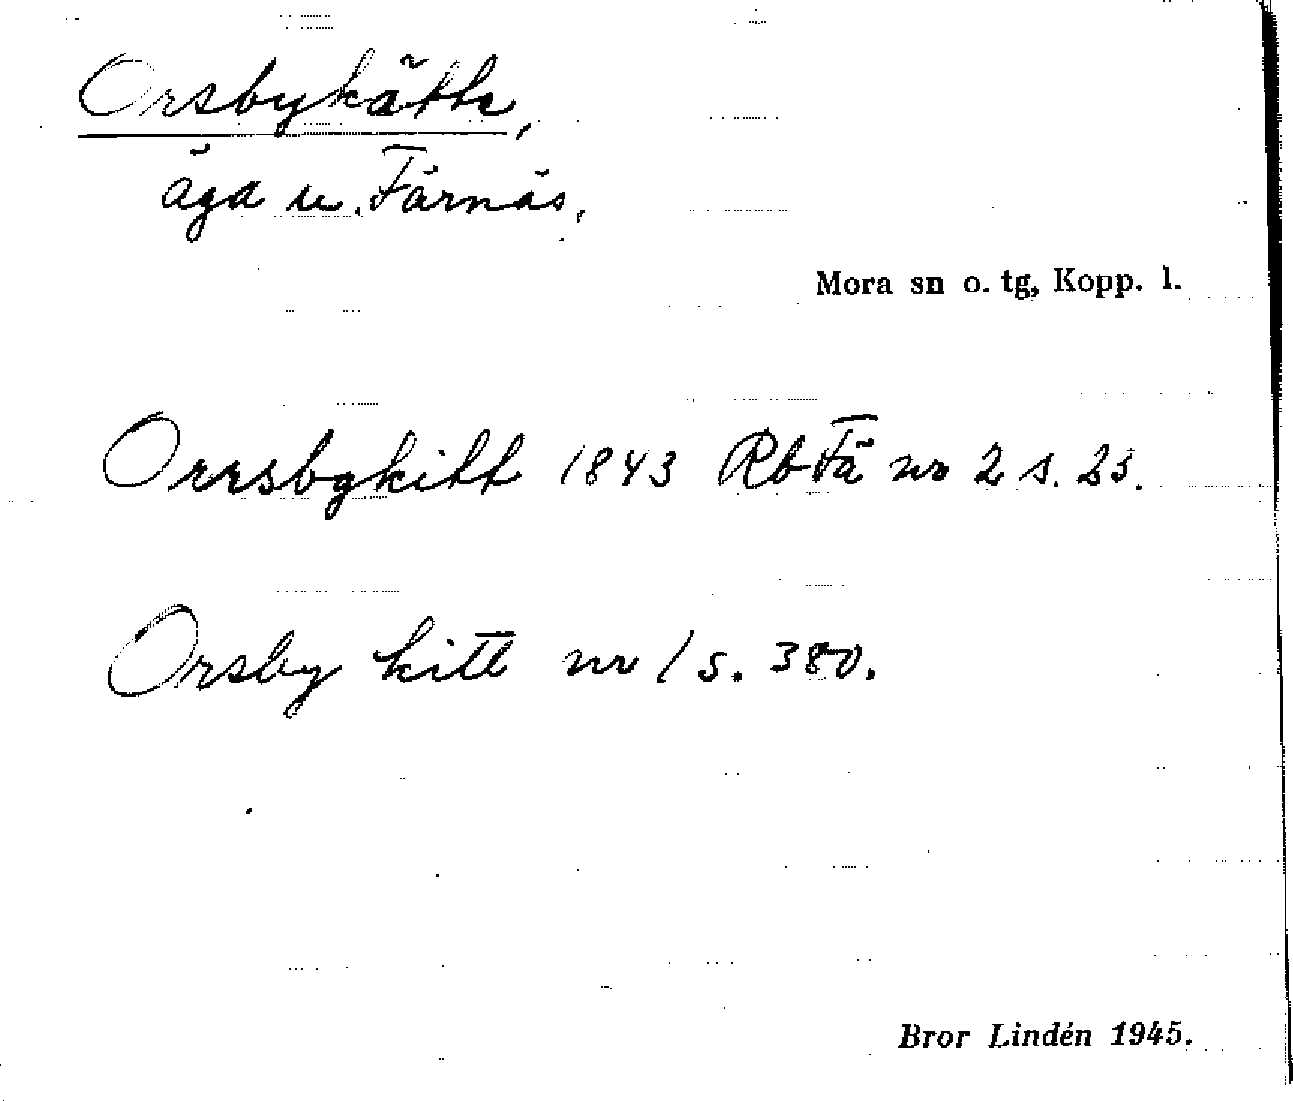 Orsbykätte,
äga u. Färnäs,
Mora sn o. tg, Kopp. l.
Orrsbykitt 1843 Rb Fä nr 2 s. 25.
Orsby kitt nr 1 s. 380.
Bror Lindén 1945.